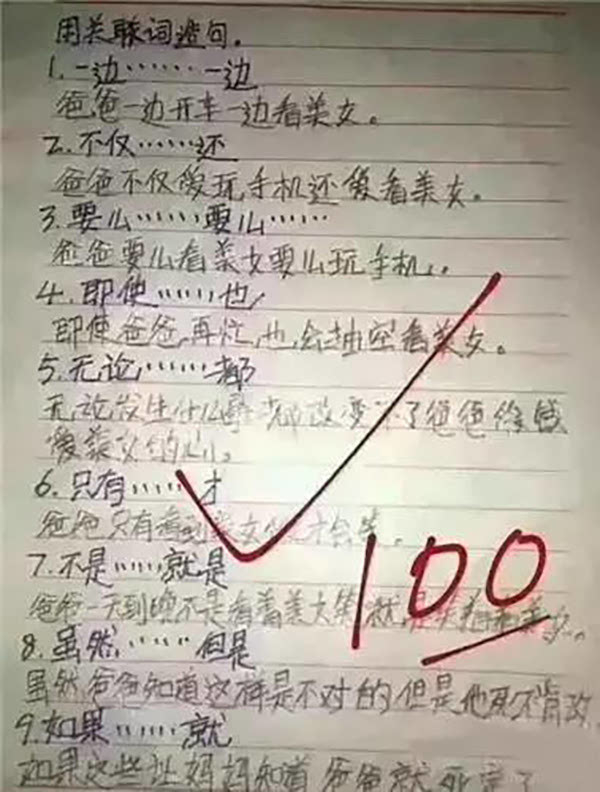 用关联词造句。
1.一边……一边
爸爸一边开车一边看美女。
2.不仅……还
爸爸不仅爱玩手机还爱看美女。
3.要么……要么……
爸爸要么看美女要么玩手机。
4.即使……也
即使爸爸再忙,也会抽空看美女。
5.无论……都
无论发生什么事都改变不了爸爸
爱美女的心。
6.只有……才
爸爸只有看到美女才会笑。
7.不是……就是
爸爸一天到晚不是看着美女笑就是美女。
8.虽然……但是
虽然爸爸知道这样是不对的但是他死不肯改
9.如果……就
如果这些让妈妈知道爸爸就死定了
100